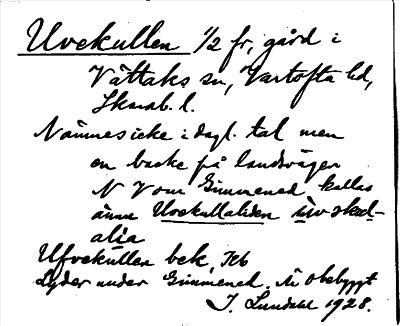 Uvekullen 1/2 fr, gård i
Vättaks sn, Vartofta hd,
Skarab. l.
Nämnes icke i dagl. tal men
en backe på landsvägen
N V om Simmened kallas
ännu Uvekullaliden
Ufvekullen bek,
Lyder under Simmened. Är obebyggt
J. Lundahl 1928.